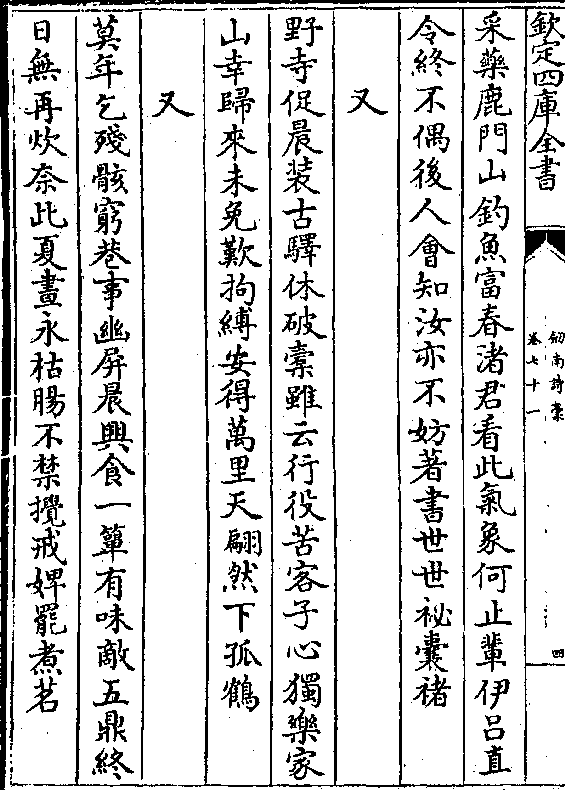 欽定四庫全書
劒南詩藁
卷七十一
四
采藥鹿門山釣魚富春渚君看此氣象何止輩伊吕直
令終不偶後人會知汝亦不妨著書世世祕囊褚
又
野寺促晨装古驛休破橐雖云行役苦客子心獨樂家
山幸歸來未免歎拘縛安得萬里天翩然下孤鶴
又
莫年乞殘骸窮巷事幽屏晨興食一簞有味敵五鼎終
日無再炊奈此夏晝永枯腸不禁攪戒婢罷煮茗